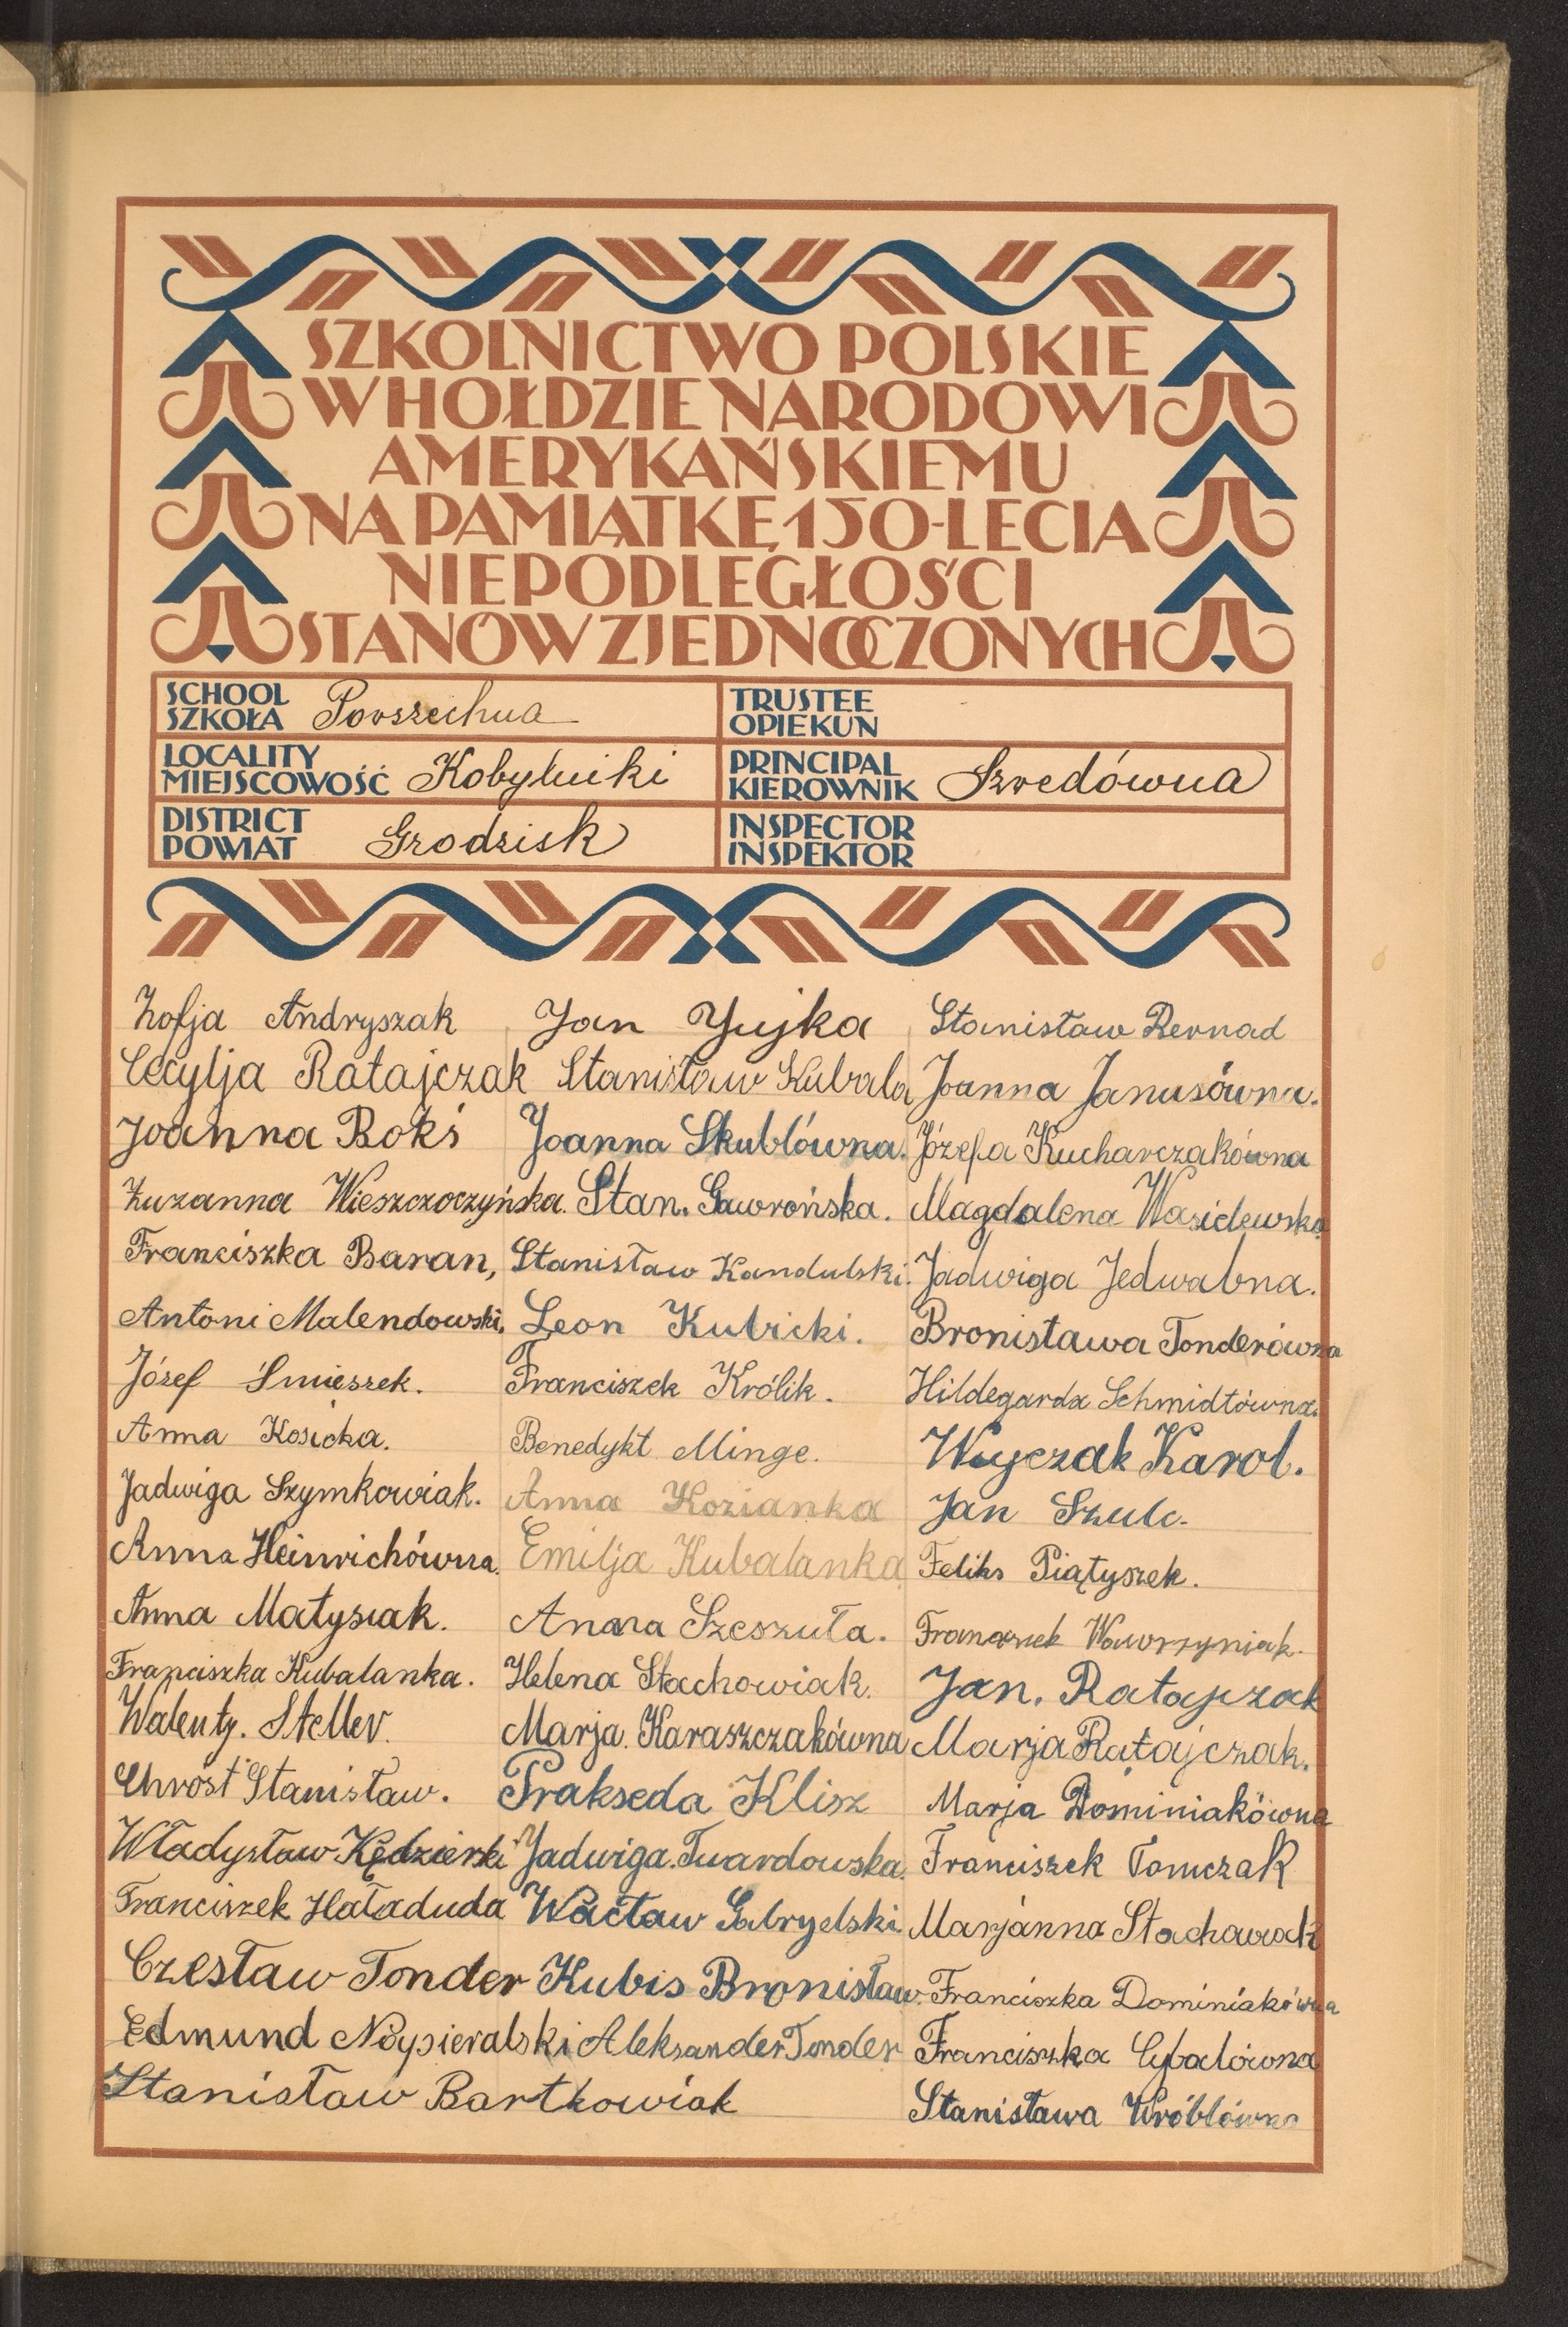 SZKOLNICTWO POLSKIE
W HOŁDZIE NARODOWI
AMERYKAŃSKIEMU
NA PAMIĄTKĘ 150-LECIA
NIEPODLEGŁOŚCI
STANÓW ZJEDNOCZONYCH
SCHOOL
SZKOŁA Powszechna
TRUSTEE
OPIEKUN
LOCALITY
MIEJSCOWOŚĆ Kobylniki
PRINCIPAL
KIEROWNIK Szredówna
DISTRICT
POWIAT Grodzisk
INSPECTOR
INSPEKTOR
Zofja Andryszak
Cecylja Ratajczak
Joanna Rokś
Zuzanna Wieszczoczyńska.
Franciszka Baran,
Antoni Malendowski,
Józef Śmieszek.
Anna Kosicka.
Jadwiga Szymkowiak.
Anna Heinrichówna.
Anna Matysiak.
Franciszka Kubalanka.
Walenty. Steller.
Chróst Stanisław.
Władysław Kędzierski
Franciszek Hataduda
Czesław Tonder
Edmund Noysieralski
Stanisław Bartkowiak
Jan Yujka
Stanisław Kubala
Joanna Skublówna.
Stan. Gawrońska.
Stanisław Kandulski.
Leon Kubicki.
Franciszek Królik.
Benedykt Minge.
Anna Kozianka
Emilja Kubalanka
Anna Szeszuła.
Helena Stachowiak.
Marja. Karaszczakówna
Prakseda Klisz
Jadwiga. Twardowska.
Wacław Gabryelski.
Kubis Bronisław.
Aleksander Tonder
Stanisław Bernad
Joanna Janusówna.
Józefa Kucharczakówna
Magdalena Wasielewska
Jadwiga Jedwabna.
Bronisława Tonderówna
Hildegarda Schmidtówna.
Wojczak Karol.
Jan Szulc.
Feliks Piątyszek.
Franciszek Wawrzyniak.
Jan. Ratajczak
Marja Ratajczak.
Marja Dominiakówna
Franciszek Tomczak
Marjanna Stachowiak
Franciszka Dominiakówna
Franciszka Cybalówna
Stanisława Wróblówna